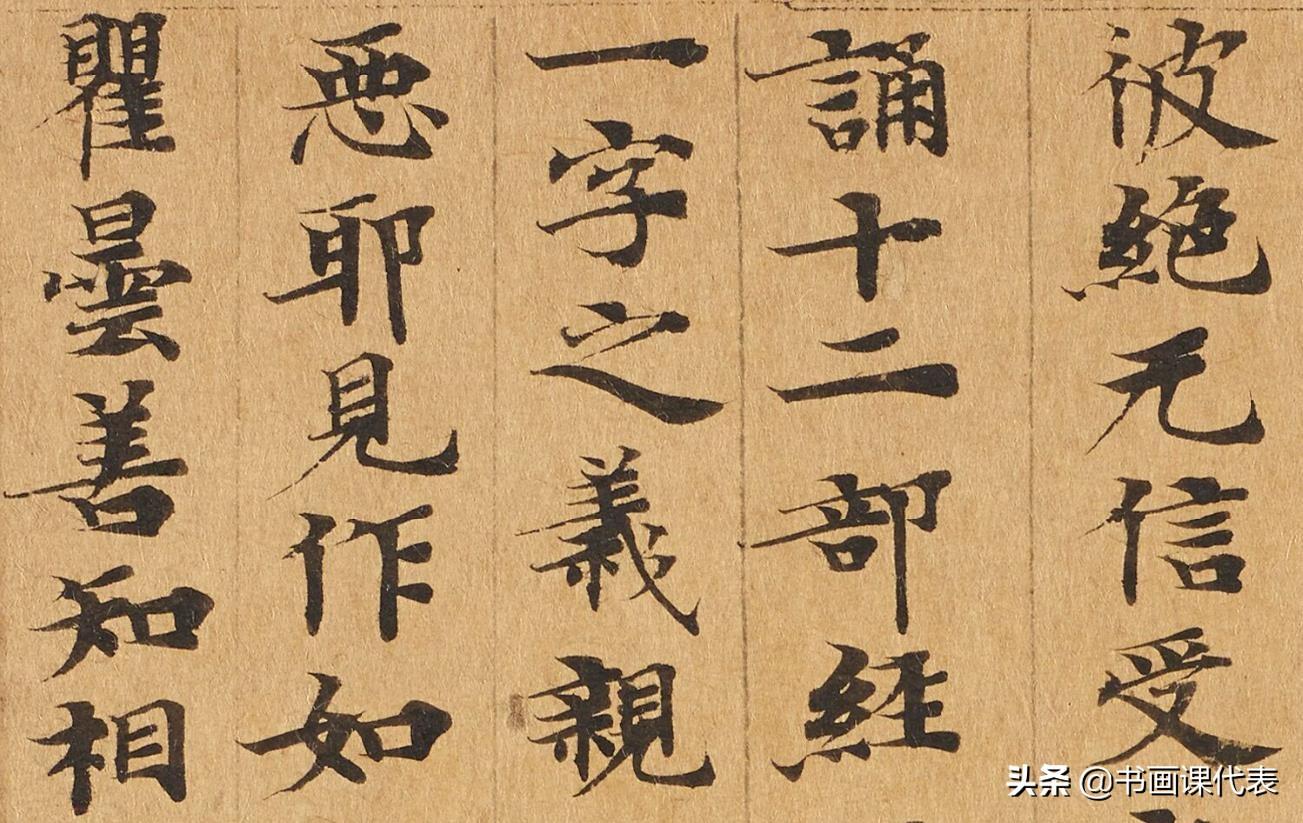 彼絶无信受
誦十二部経
一字之義親
惡耶見作如
瞿曇善知相
头条 @书画课代表